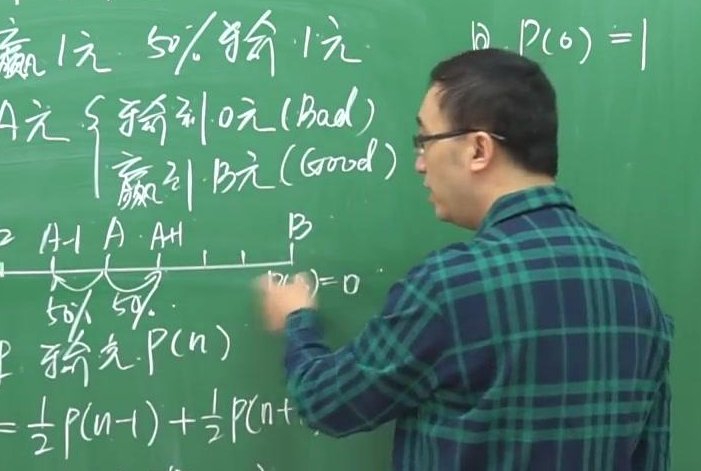 赢1元 50%输1元
① P(0)=1
A元 { 输到0元(Bad)
赢到B元(Good)
2 A-1 A A+1 B
50% 50% P(B)=0
输完P(n)
=1/2P(n-1)+1/2P(n+